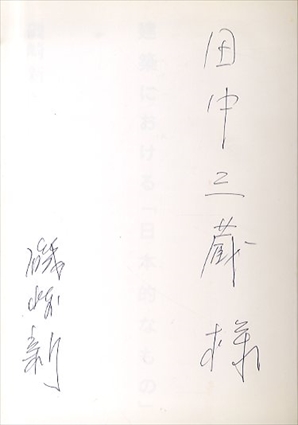 田中三蔵様
磯崎新
建築における「日本的なもの」